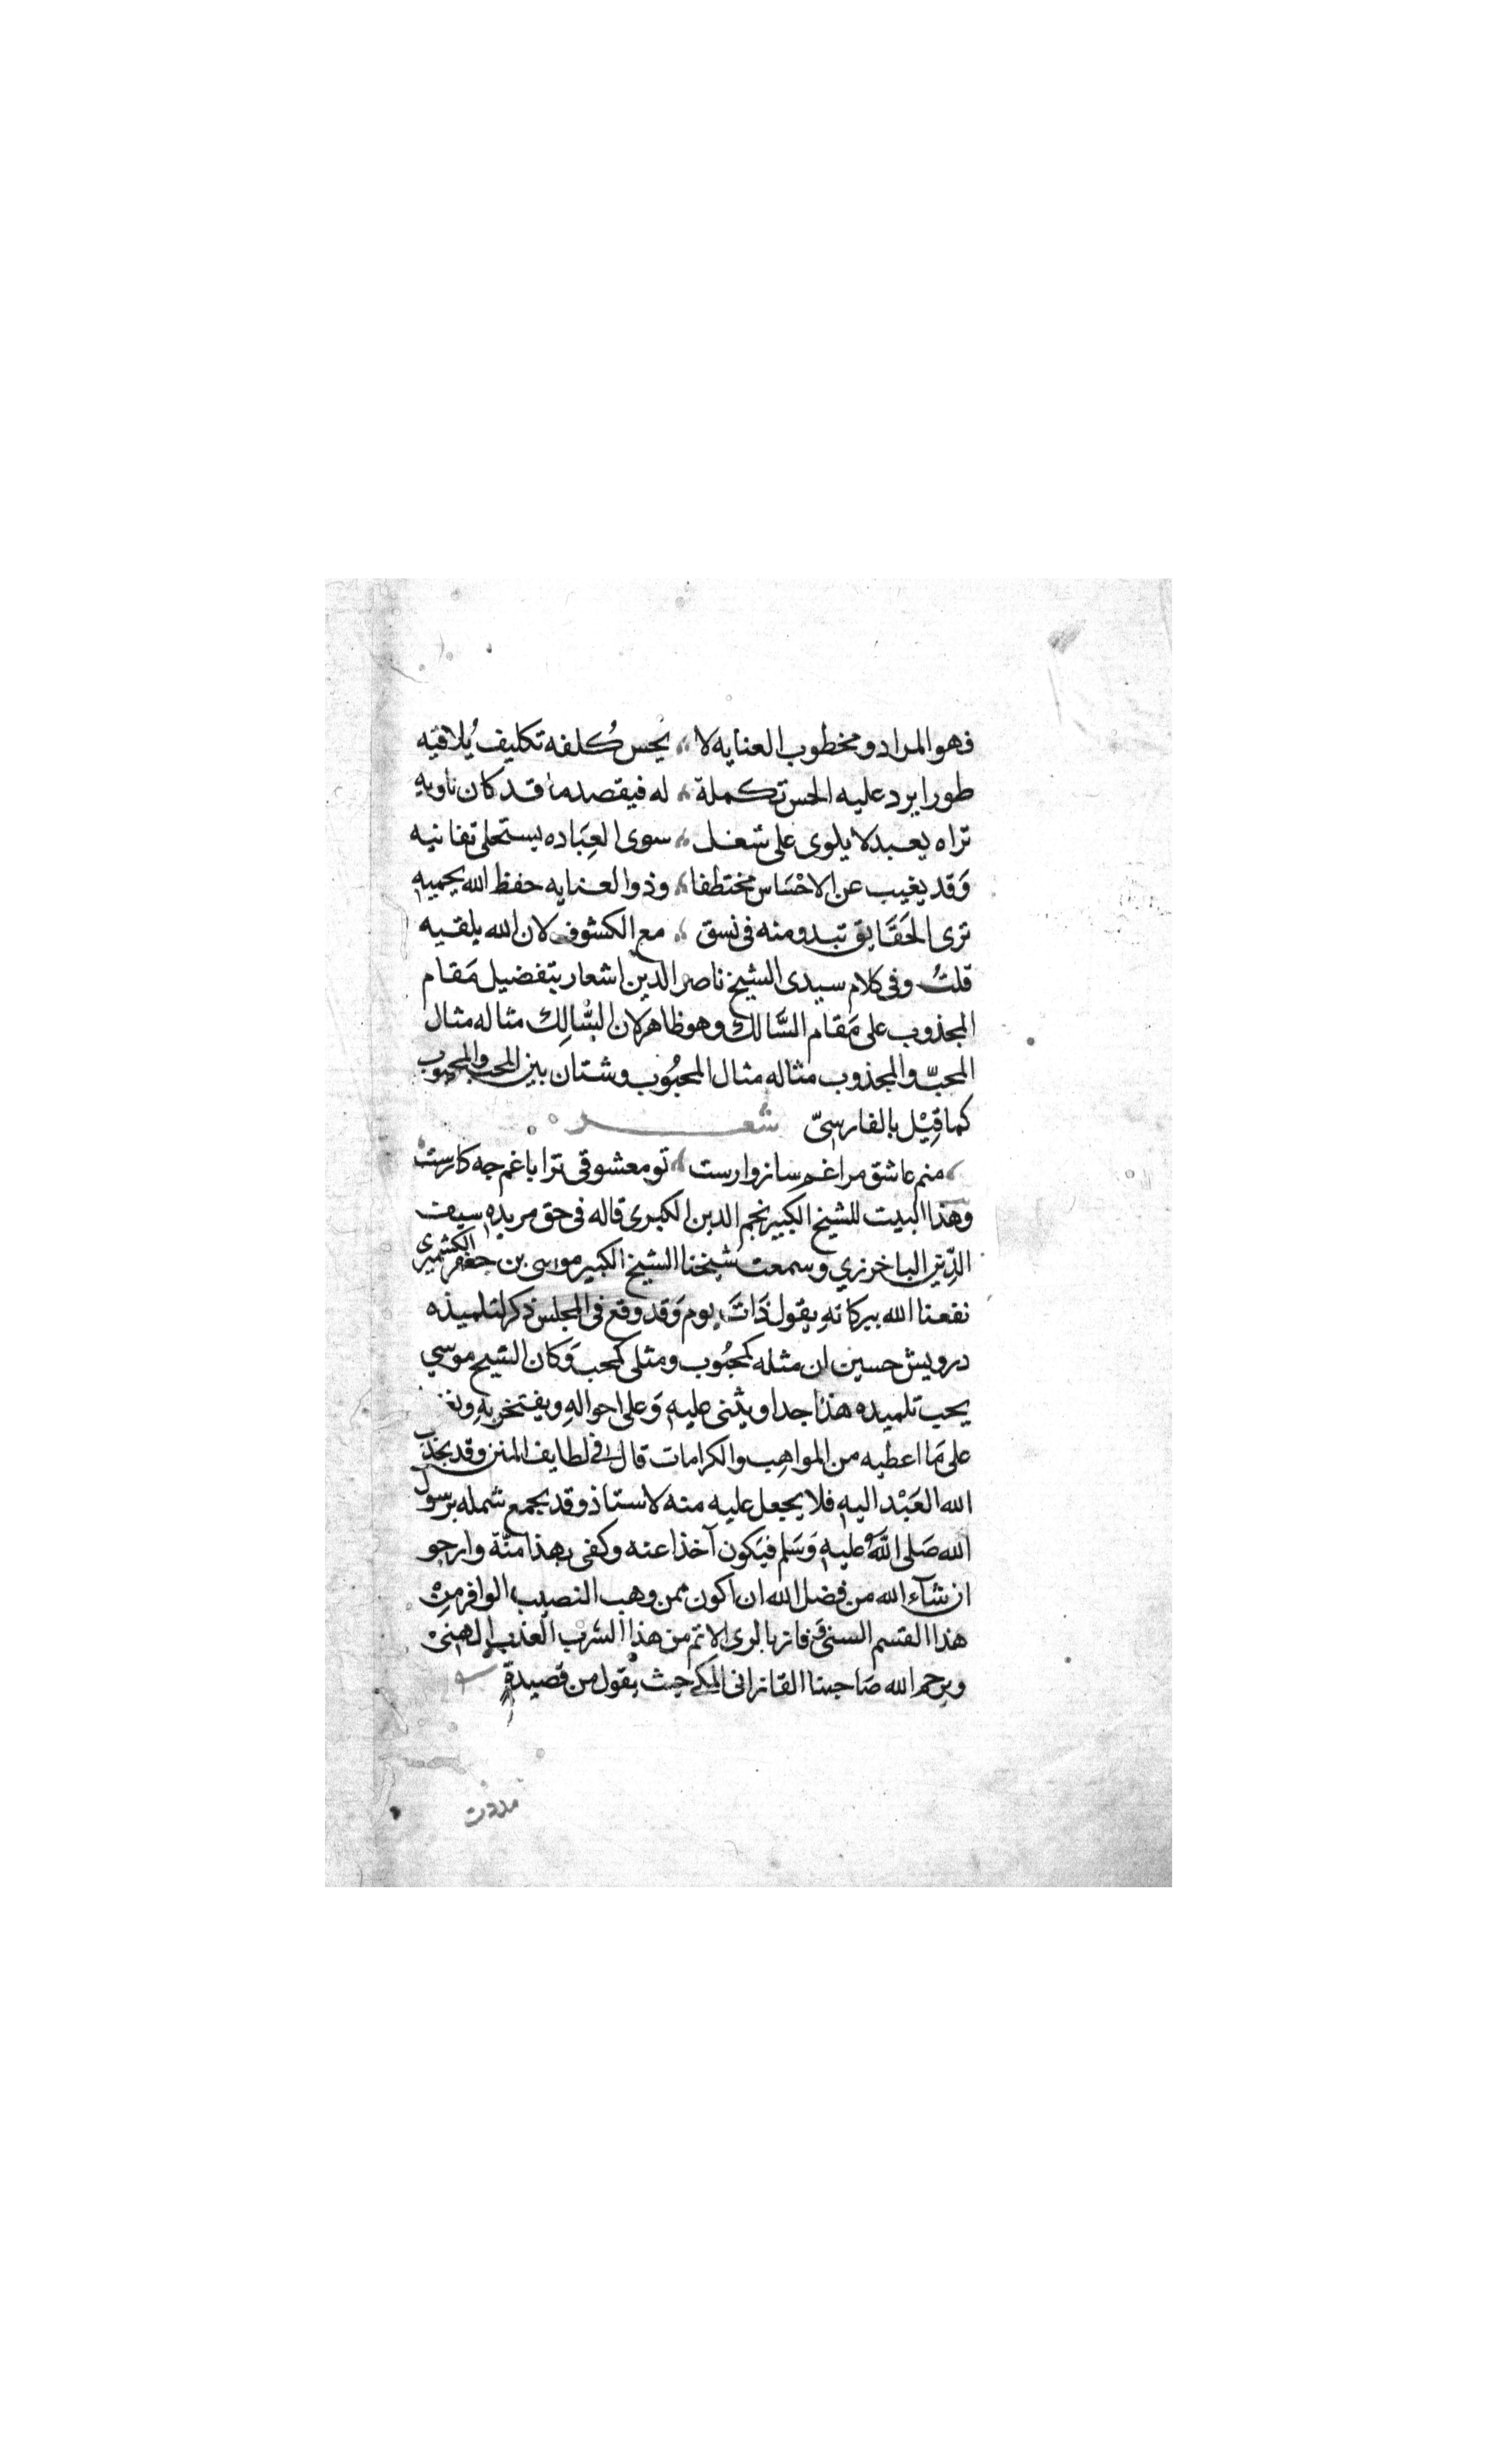 فهو المراد ومخطوب العنايه لا ، يحس كُلفه تكليف يُلاقيه
طورا يرد عليه الحس تكملة ، له فيقصد ما قد كان ناويه
تراه يعبد لا يلوى على شغل ، سوى العِبَاده يستحلى تفانيه
وَقد يغيب عن الاحْسَاس مختطفا ، وذو العنايه حفظ الله يحميه
ترى الحَقَايق تبدو منه فى نسق ، مع الكشوف لان الله يلقيه
قلتُ وفى كلام سيدى الشيخ ناصر الدين اشعار بتفضيل مَقام
المجذوب على مَقام السَّالك وهو ظاهر لان السَّالِك مثاله مثال
المحبّ والمجذوب مثاله مثال المحبُوب وشتان بين المحب والمحبوب
كما قِيْل بالفارسىّ شعر
منم عاشق مرا غم سازوارست ، تو معشوقى ترا باغم چه كارست
وهذا البيت للشيخ الكبير نجم الدين الكبرى قاله فى حق مريده سيف
الدِّين الباخرزي وسمعت شيخنا الشيخ الكبير موسى بن جعفر الكشميرى
نفعنا الله ببركاتهِ يقول ذَاتَ يوم وَقد وقع فى المجلس ذكر لتلميذه
درويش حسين ان مثله كمحبُوب ومثلى كمحب وَكان الشيخ موسي
يحب تلميذه هذا جدا ويثنى عليه وَعلى احوالهِ ويفتخر بهِ
على مَا اعطيه من المواهِب والكرامات قال فى لطايف المنن وقد يجذب
الله العَبْد اليه فلا يجعل عليه منه لاستاذ وقد يجمع شمله برسول
الله صَلى اللَّه عليه وَسَلم فيَكون آخذا عنه وكفى بهذا منّة وارجو
ان شآء الله من فضل الله ان اكون ممن وهب النصيب الوافر مِنْ
هذا القسم السنى وَفاز بالرى الاتم من هذا الشرب العذب الهنى
ويرحم الله صَاحبنا القازانى المكى حيث يقول من قصيدة
مددت